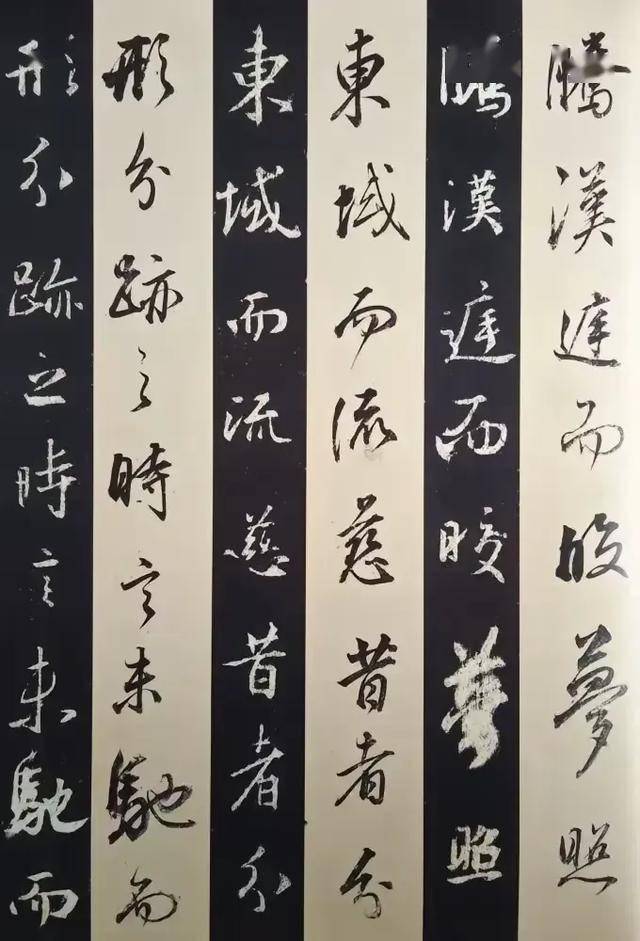 騰漢庭而皎夢照
騰漢庭而皎夢照
東域而流慈昔者分
東域而流慈昔者分
形分跡之時言未馳而
形分跡之時言未馳而